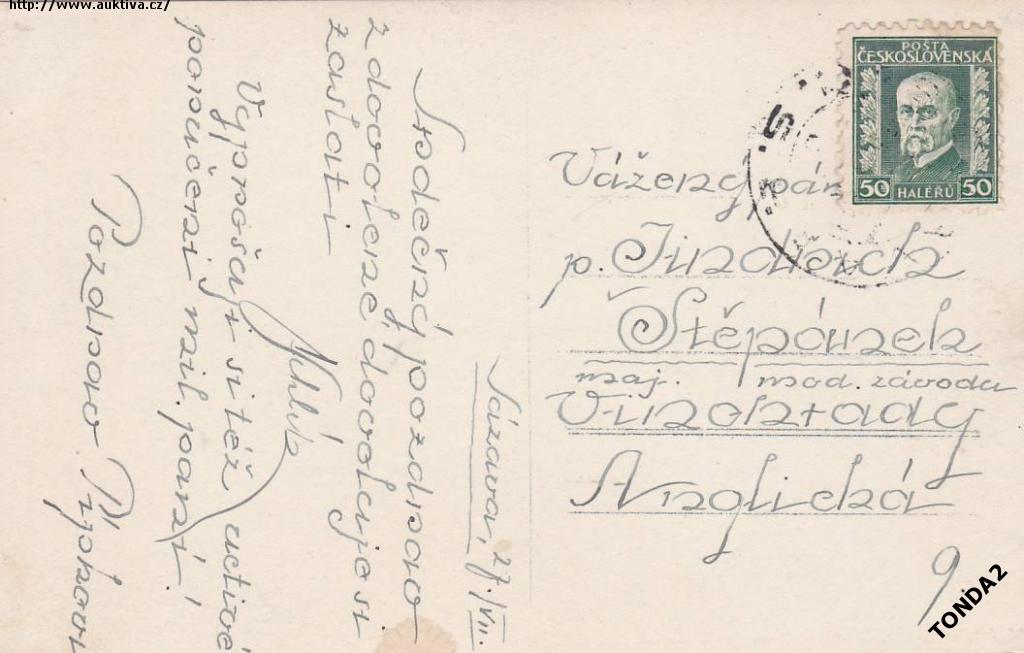 http://www.auktiva.cz/
Sázava, 27./VII.
Srdečný pozdrav
z dovolené dovoluje si
zaslati
Vyprošuji si též uctivé
poručení mil. paní!
Pozdrav
POŠTA
ČESKOSLOVENSKA
50 HALÉŘŮ 50
Vážený pán
p. Jindřich
Štěpánek
maj. mod. závodu
Vinohrady
Anglická
9.
TONDA2